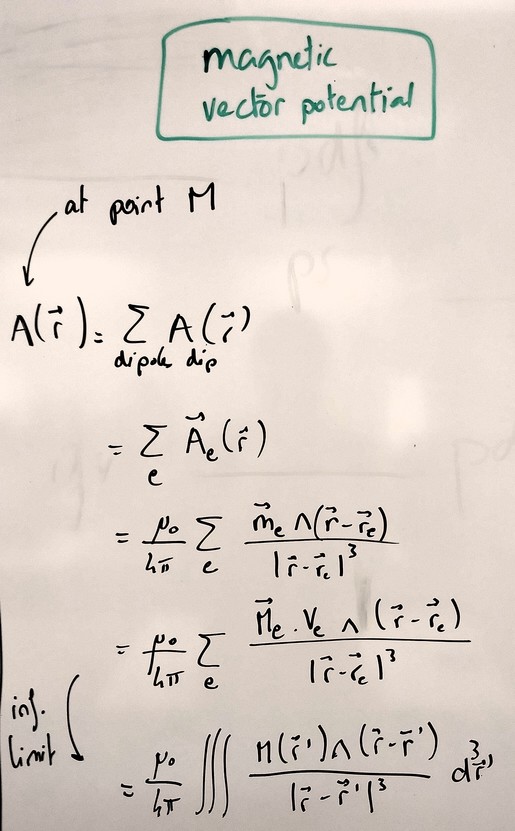 magnetic
vector potential
at point M
A(r⃗) = Σ A (r⃗)
dipole dip
= Σ A⃗e(r⃗)
e
= μ₀/4π Σe m⃗e ∧ (r⃗ - r⃗e) / |r⃗ - r⃗e|³
= μ₀/4π Σe M⃗e . Ve ∧ (r⃗ - r⃗e) / |r⃗ - r⃗e|³
inf.
limit
= μ₀/4π ∭ M(r⃗') ∧ (r⃗ - r⃗') / |r⃗ - r⃗'|³ d³r⃗'